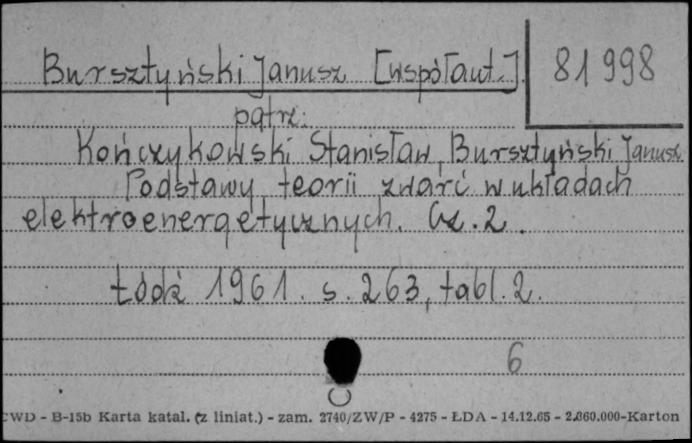 Bursztyński Janusz [współaut.]
81 998
patrz:
Kończykowski Stanisław, Bursztyński Janusz
Podstawy teorii zwarć w układach
elektroenergetycznych. Cz. 2.
Łódź 1961. s. 263, tabl. 2.
6
CWD - B-15b Karta katal. (z liniat.) - zam. 2740/ZW/P - 4275 - ŁDA - 14.12.65 - 2.860.000-Karton